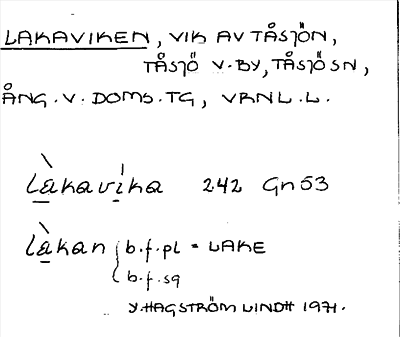 LAKAVIKEN, VIK AV TÅSJÖN,
TÅSJÖ V. BY, TÅSJÖ SN,
ÅNG. V. DOMS. TG, VRNL. L.
làkavìka 242 Gn 53
làkan b.f.pl = LAKE
b.f.sg
Y. HAGSTRÖM LINDH 1971.